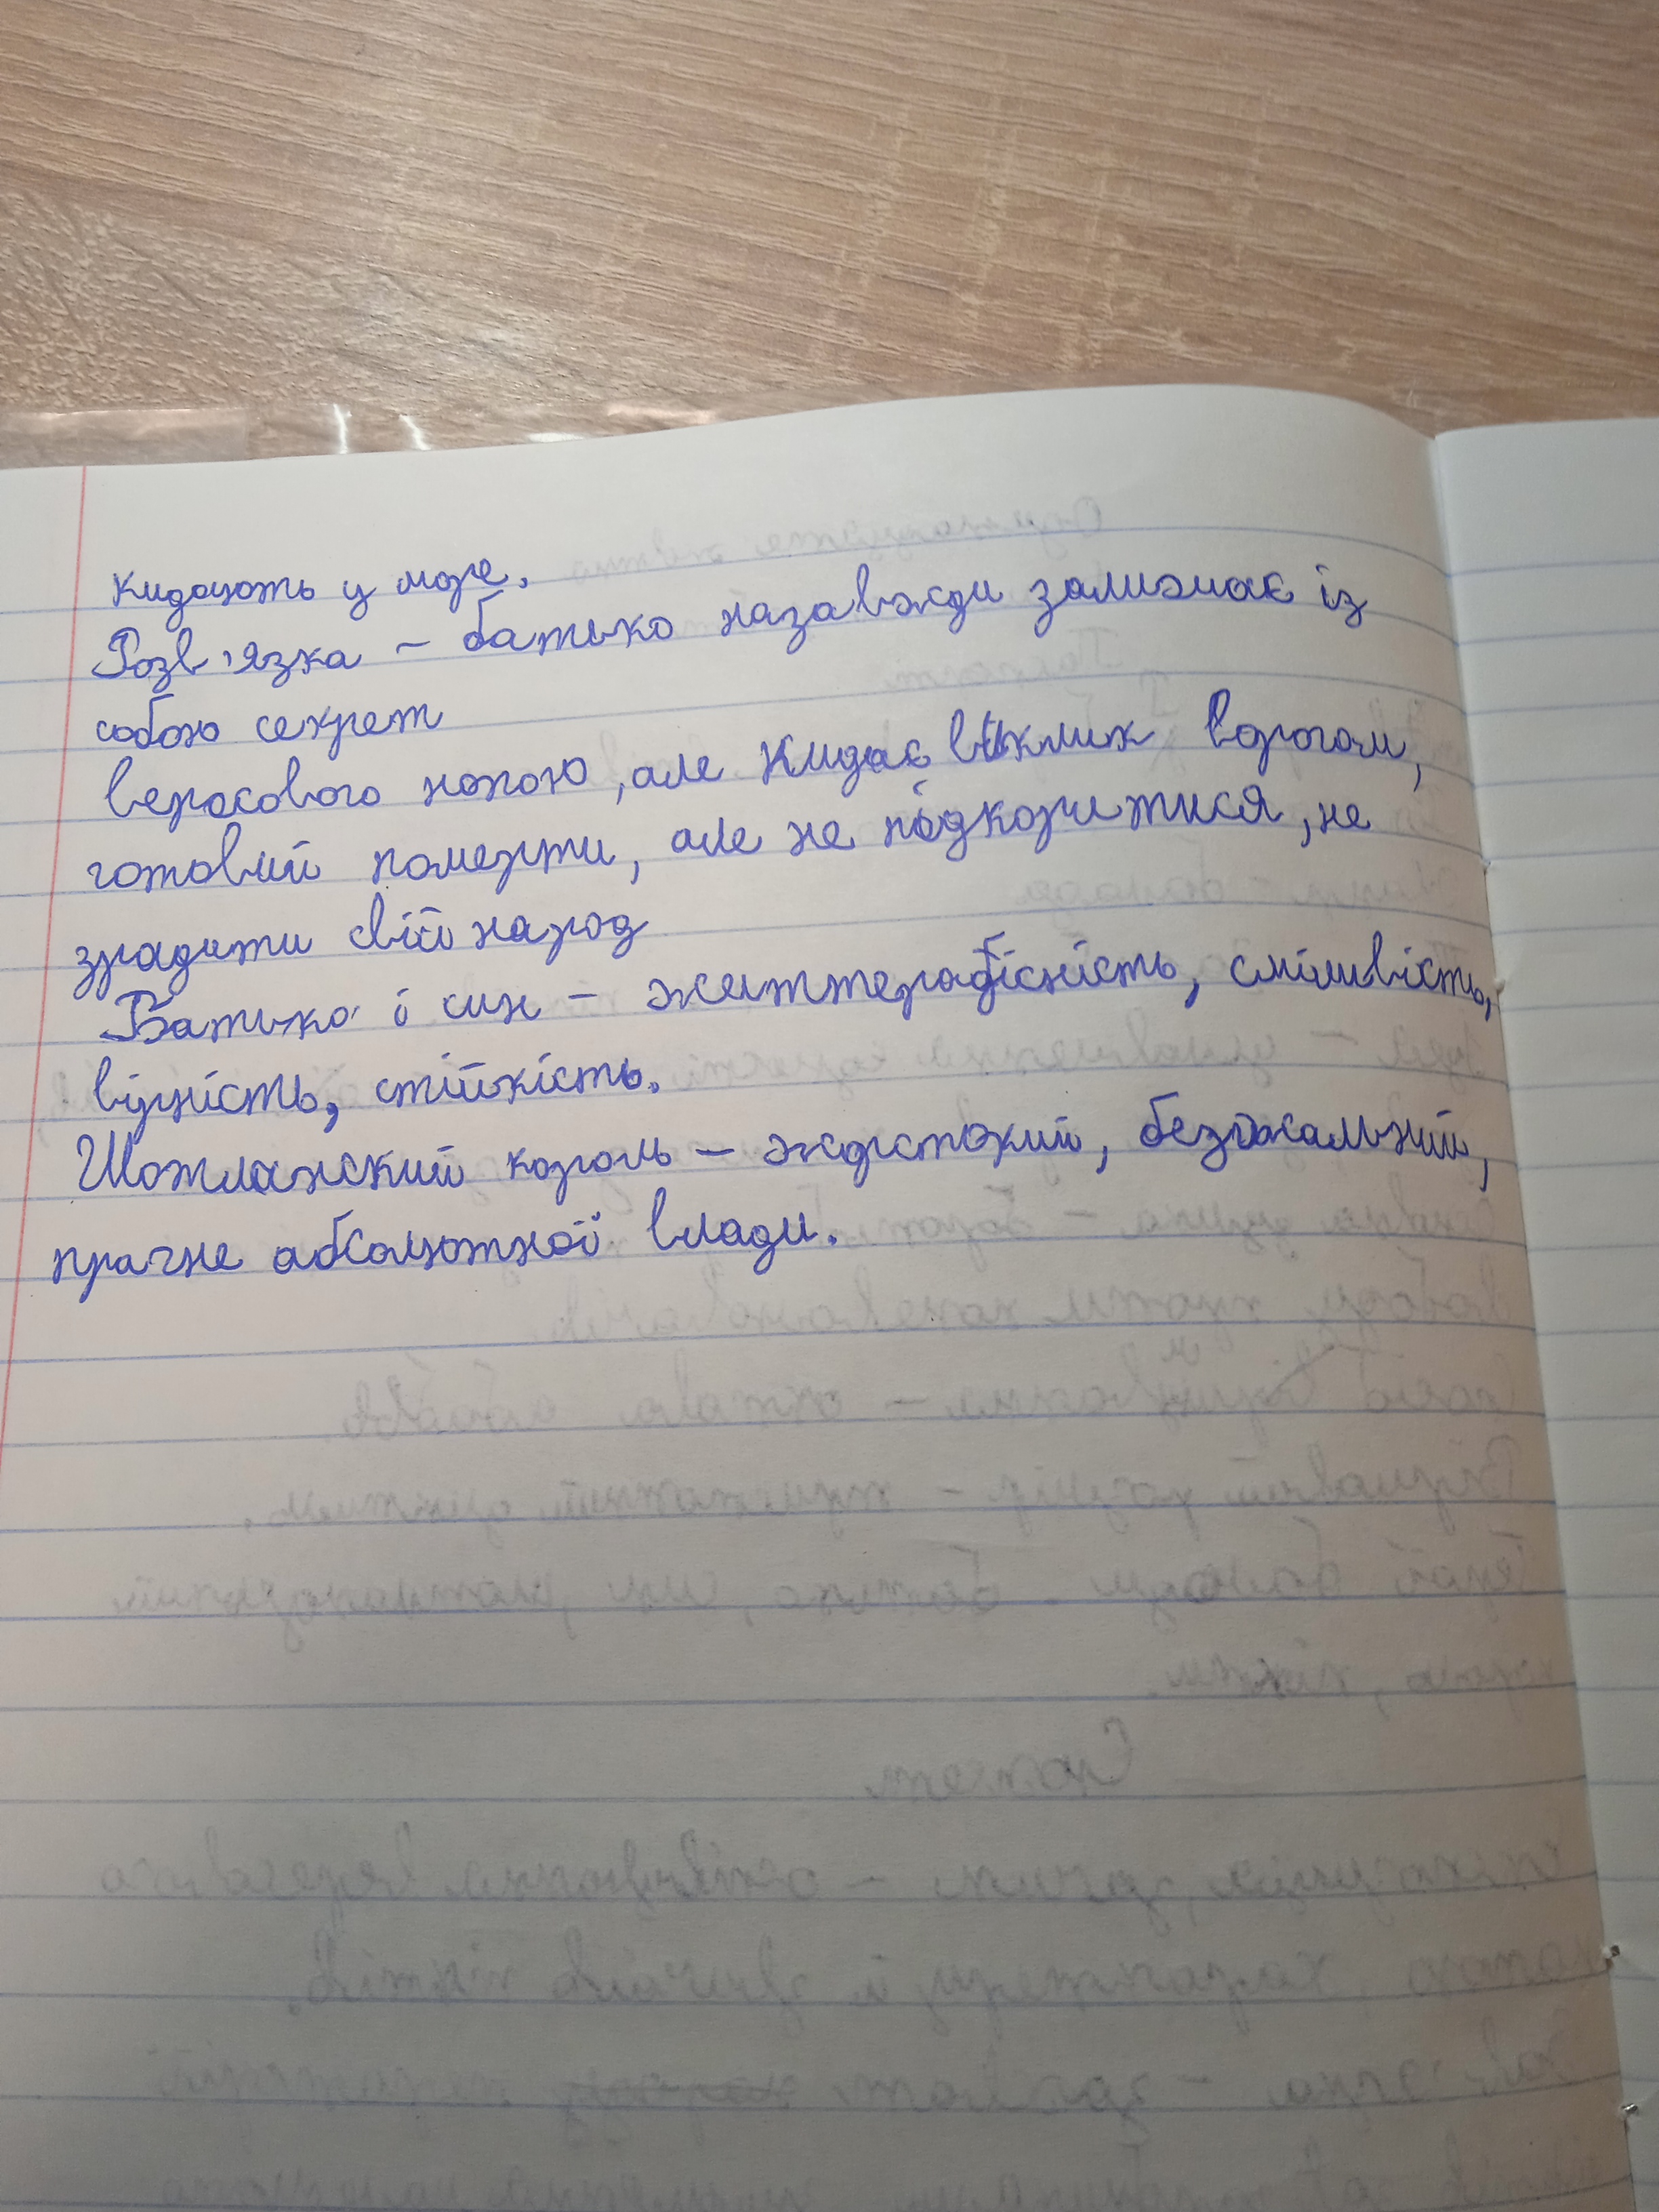 кидають у море.
Розв'язка – батько назавжди залишає із
собою секрет
вересового напою, але кидає виклик ворогам,
готовий померти, але не підкоритися, не
зрадити свій народ
Батько і син – життерадісність, сміливість,
вірність, стійкість.
Шотланский король – жорстокий, безжальний,
прагне абсолютної влади.